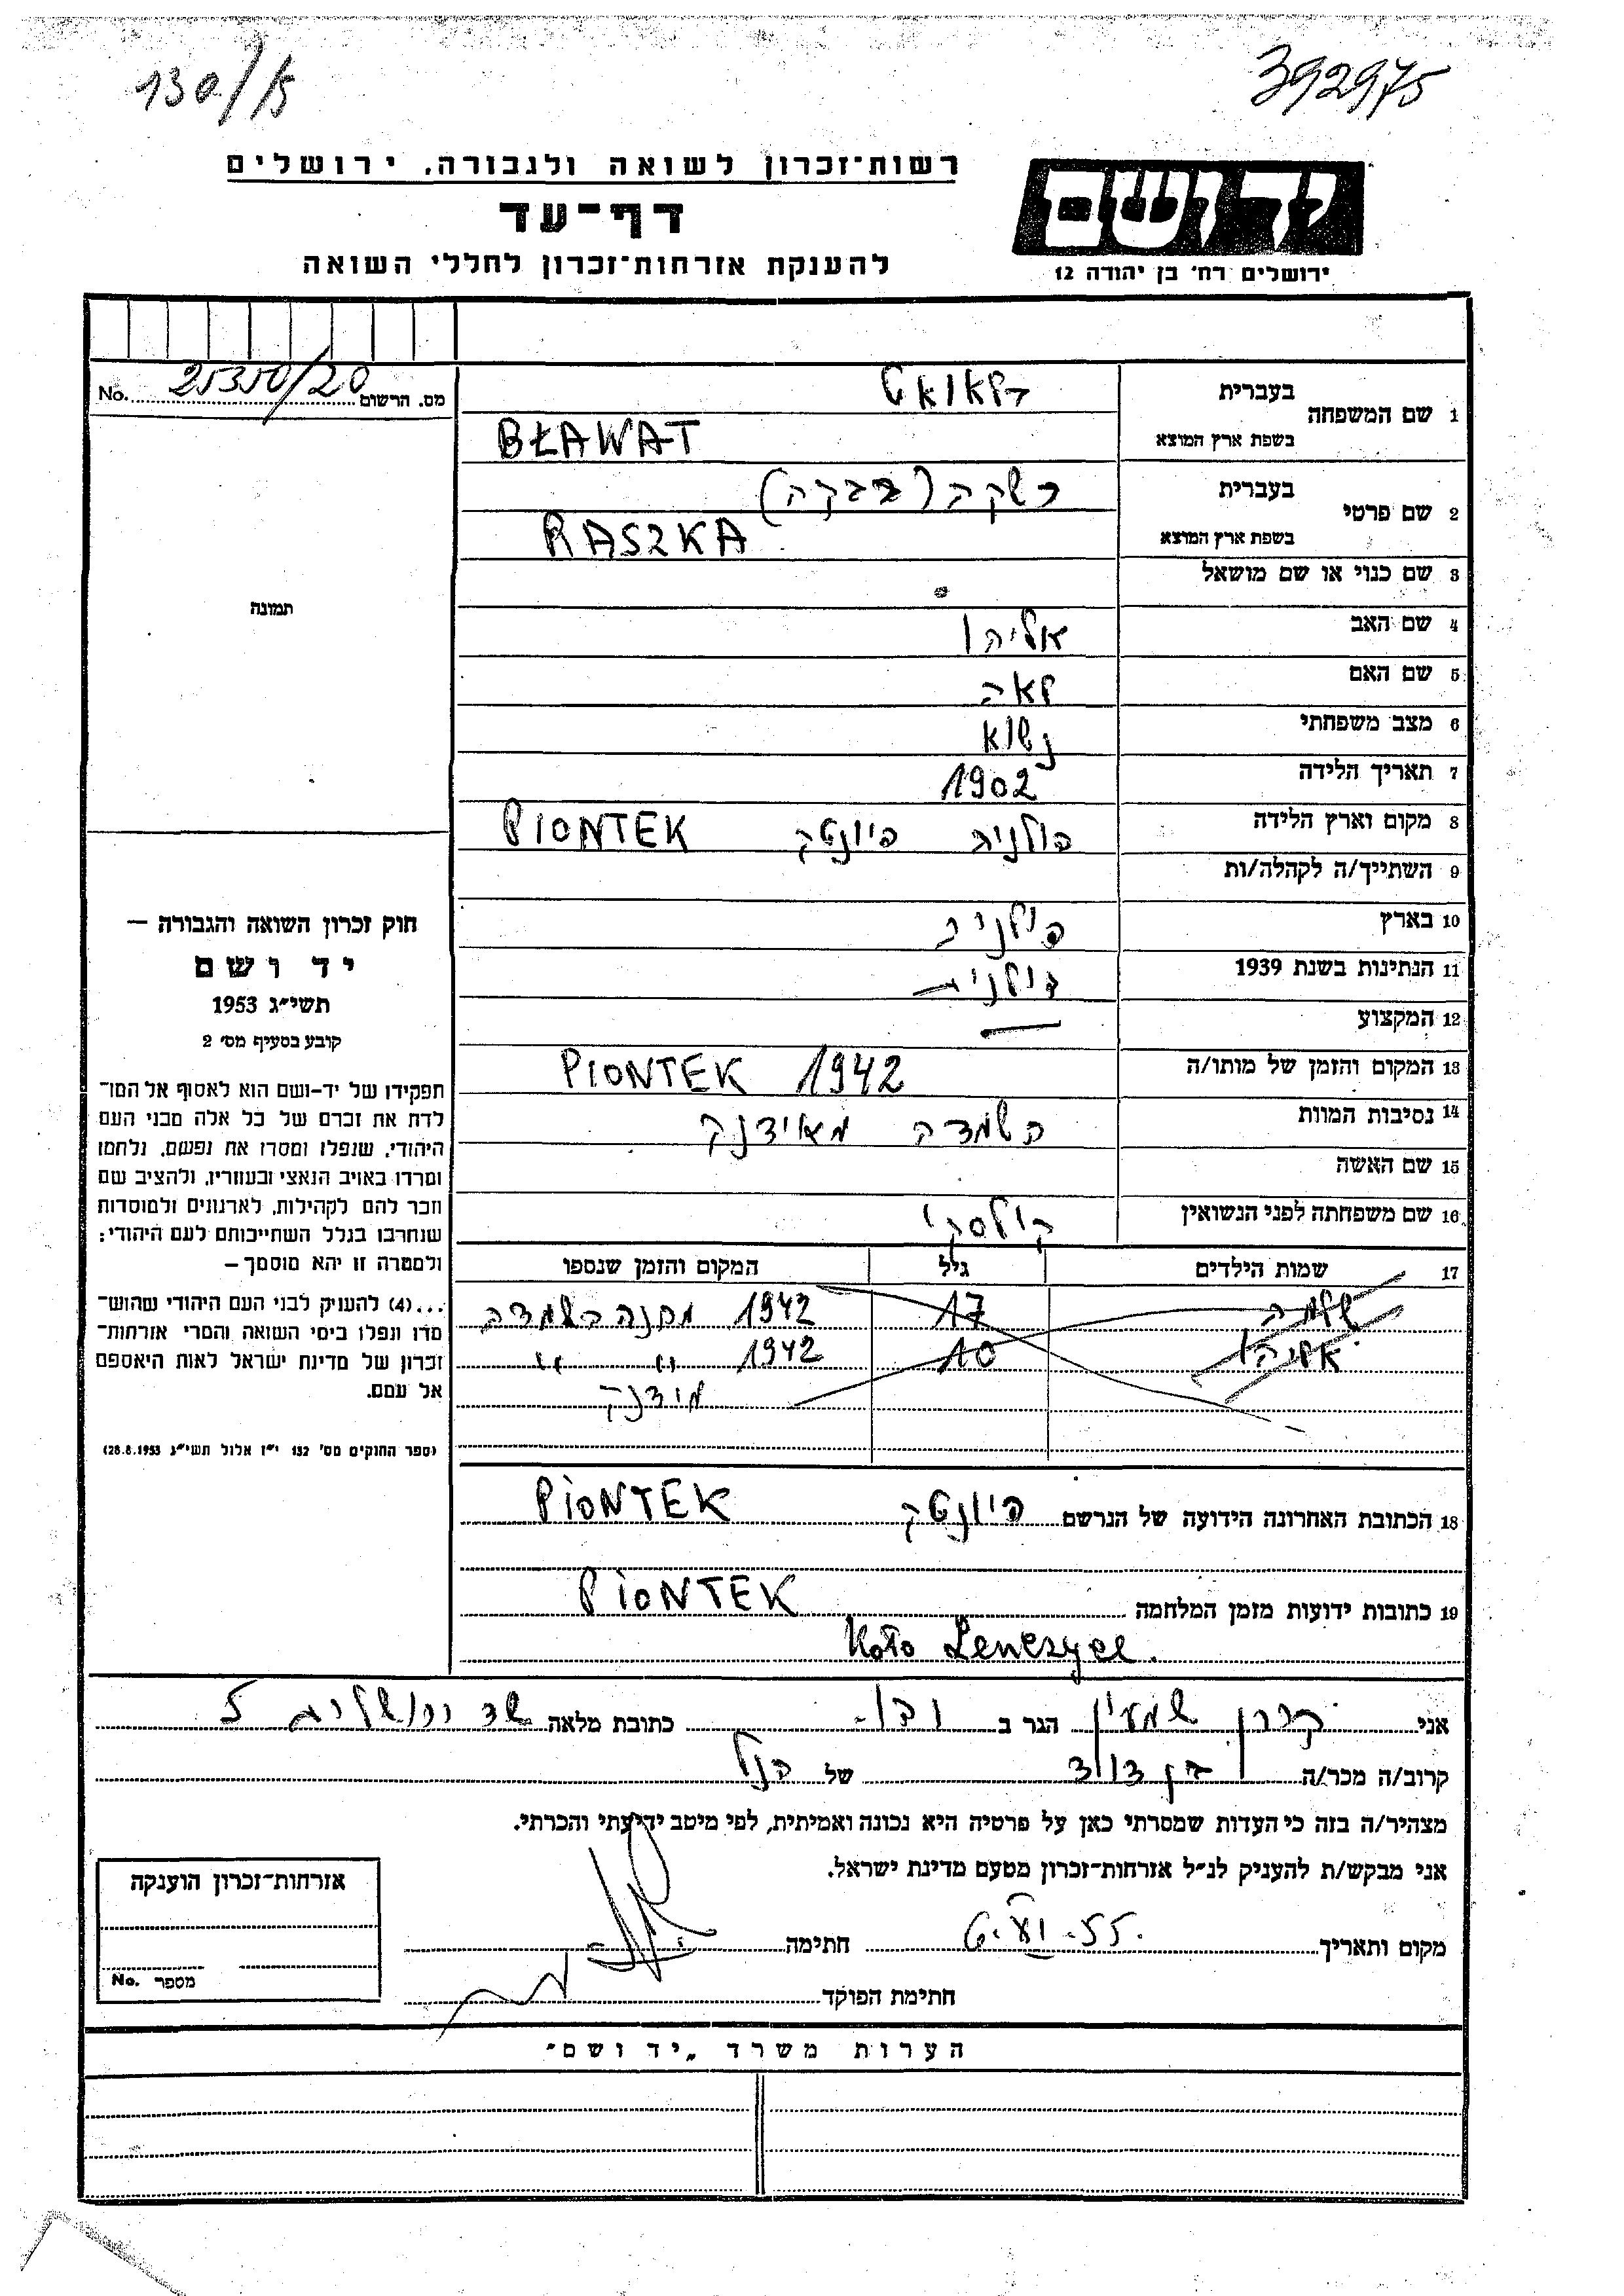 130/
392975
רשות־זכרון לשואה ולגבורה, ירושלים
דף־עד
להענקת אזרחות־זכרון לחללי השואה
יד ושם
ירושלים רח' בן יהודה 12
מס. הרשום 25350/20 No.
1 שם המשפחה בעברית בלאואט
בשפת ארץ המוצא BŁAWAT
2 שם פרטי בעברית רשקה (רבקה)
בשפת ארץ המוצא RASZKA
3 שם כנוי או שם מושאל
תמונה
4 שם האב אליהו
5 שם האם לאה
6 מצב משפחתי נשוא
7 תאריך הלידה 1902
8 מקום וארץ הלידה פולניה פיונטק PIONTEK
9 השתייך/ה לקהלה/ות
10 בארץ פולניה
11 הנתינות בשנת 1939 פולנית
12 המקצוע —
13 המקום והזמן של מותו/ה PIONTEK 1942
14 נסיבות המוות השמדה מאידנק
15 שם האשה
16 שם משפחתה לפני הנשואין קולסקי
17 שמות הילדים גיל המקום והזמן שנספו
שלמה 17 1942 מחנה השמדה
אליהו 10 1942 " "
מידנק
חוק זכרון השואה והגבורה —
יד ושם
תשי״ג 1953
קובע בסעיף מס' 2
תפקידו של יד-ושם הוא לאסוף אל המו־
לדת את זכרם של כל אלה מבני העם
היהודי, שנפלו ומסרו את נפשם, נלחמו
ומרדו באויב הנאצי ובעוזריו, ולהציב שם
וזכר להם לקהילות, לארגונים ולמוסדות
שנחרבו בגלל השתייכותם לעם היהודי;
ולמטרה זו יהא מוסמך —
...(4) להעניק לבני העם היהודי שהוש־
מדו ונפלו בימי השואה והמרי אזרחות־
זכרון של מדינת ישראל לאות היאספם
אל עמם.
(ספר החוקים מס' 132 י״ז אלול תשי״ג 28.8.1953)
18 הכתובת האחרונה הידועה של הנרשם פיונטק PIONTEK
19 כתובות ידועות מזמן המלחמה PIONTEK
Koło Lenczyce.
אני שמעון הגר ב כתובת מלאה שד ירושלים 5
קרוב/ה מכר/ה בן דוד של הנ״ל
מצהיר/ה בזה כי העדות שמסרתי כאן על פרטיה היא נכונה ואמיתית, לפי מיטב ידיעתי והכרתי.
אני מבקש/ת להעניק לנ״ל אזרחות־זכרון מטעם מדינת ישראל.
מקום ותאריך 55. חתימה
חתימת הפוקד
אזרחות־זכרון הוענקה
מספר No.
הערות משרד „יד ושם"